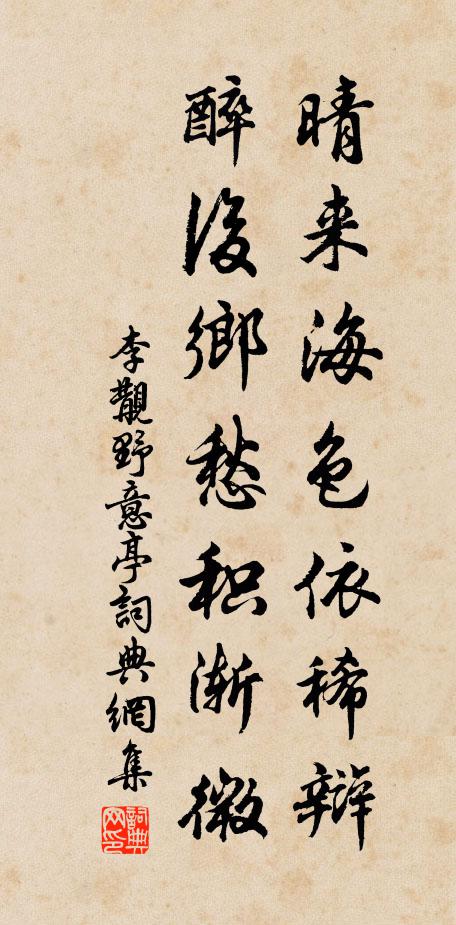 晴来海色依稀辩
醉後鄉愁积渐微
李觀野意亭詞典網集
詞典网印